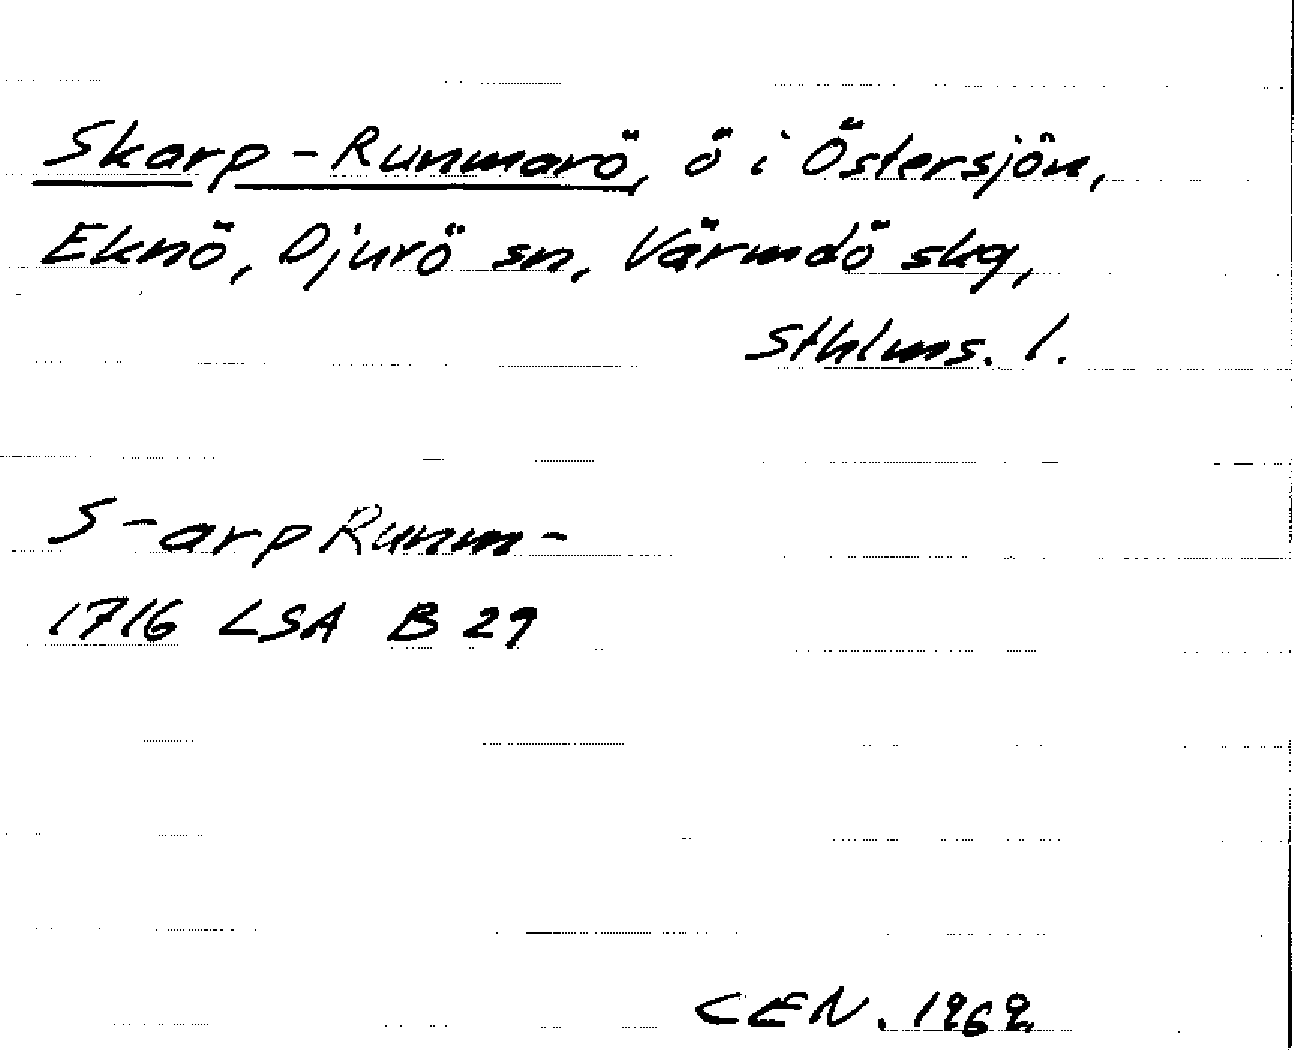 Skarp-Runmarö, ö i Östersjön,
Eknö, Djurö sn, Värmdö skg,
Sthlms. l.
S-arp Runm-
1716 LSA B 29
CEN. 1969.